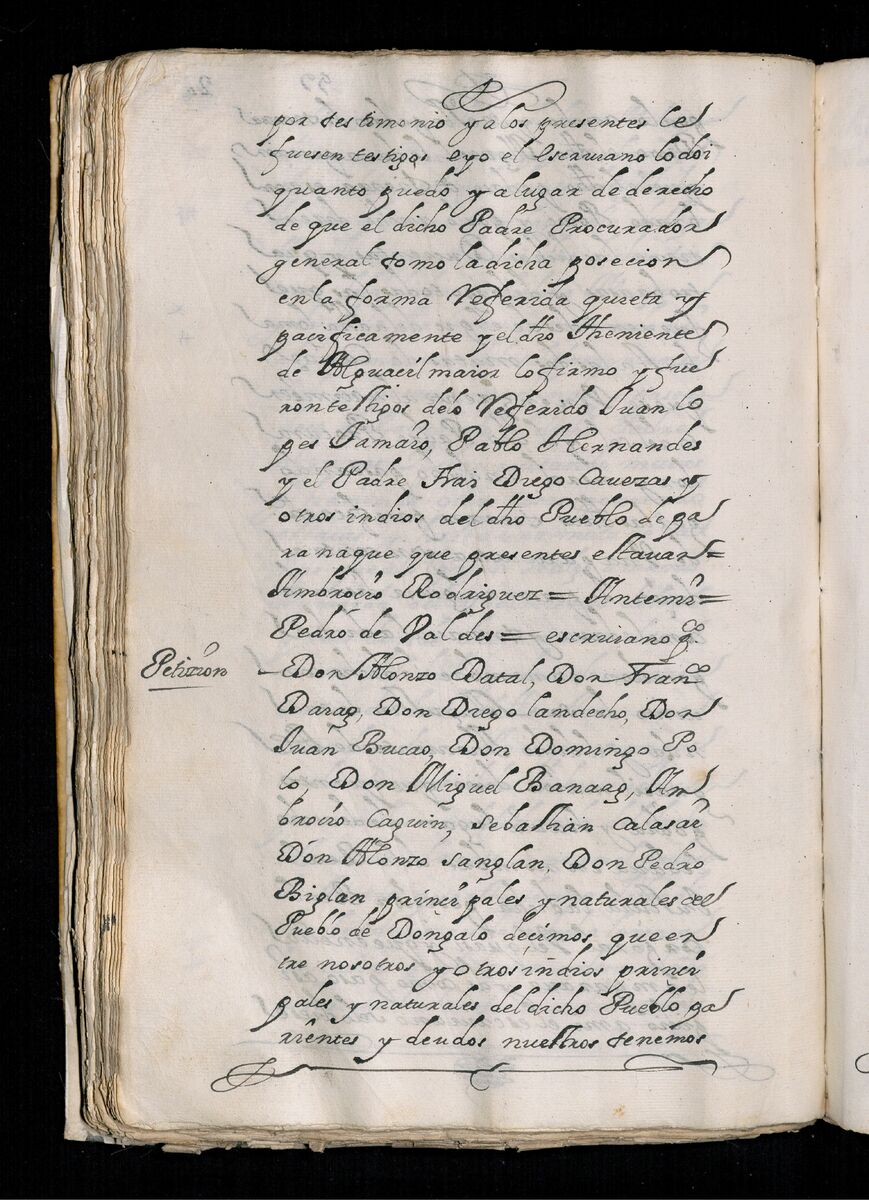 por testimonio y a los presentes le
fuesen testigos e yo el escriuano lo doi
quanto puedo y a lugar de derecho
de que el dicho Padre Procurador
general tomo la dicha posecion
en la forma Referida quieta y
pacificamente y el dho Theniente
de Alguacil maior lo firmo y fue
ron testigos delo Referido Juan lo
pes Jamaro, Pablo Hernandes
y el Padre Frai Diego Cauezas y
otros indios del dho Pueblo de pa
ranaque que presentes estauan=
Ambrocio Rodriguez= Antemi=
Pedro de Valdes= escriuano pco.
Petizion
Don Alonzo Datal, Don Franco
Darag, Don Diego landecho, Don
Juan Bucao, Don Domingo Po
lo, Don Miguel Banaag, Am
brocio Caguin, Sebastian Calasai
Don Alonzo Sanglan, Don Pedro
Biglan principales y naturales del
Pueblo de Dongalo decimos que en
tre nosotros y otros indios princi
pales y naturales del dicho Pueblo pa
rientes y deudos nuestros tenemos